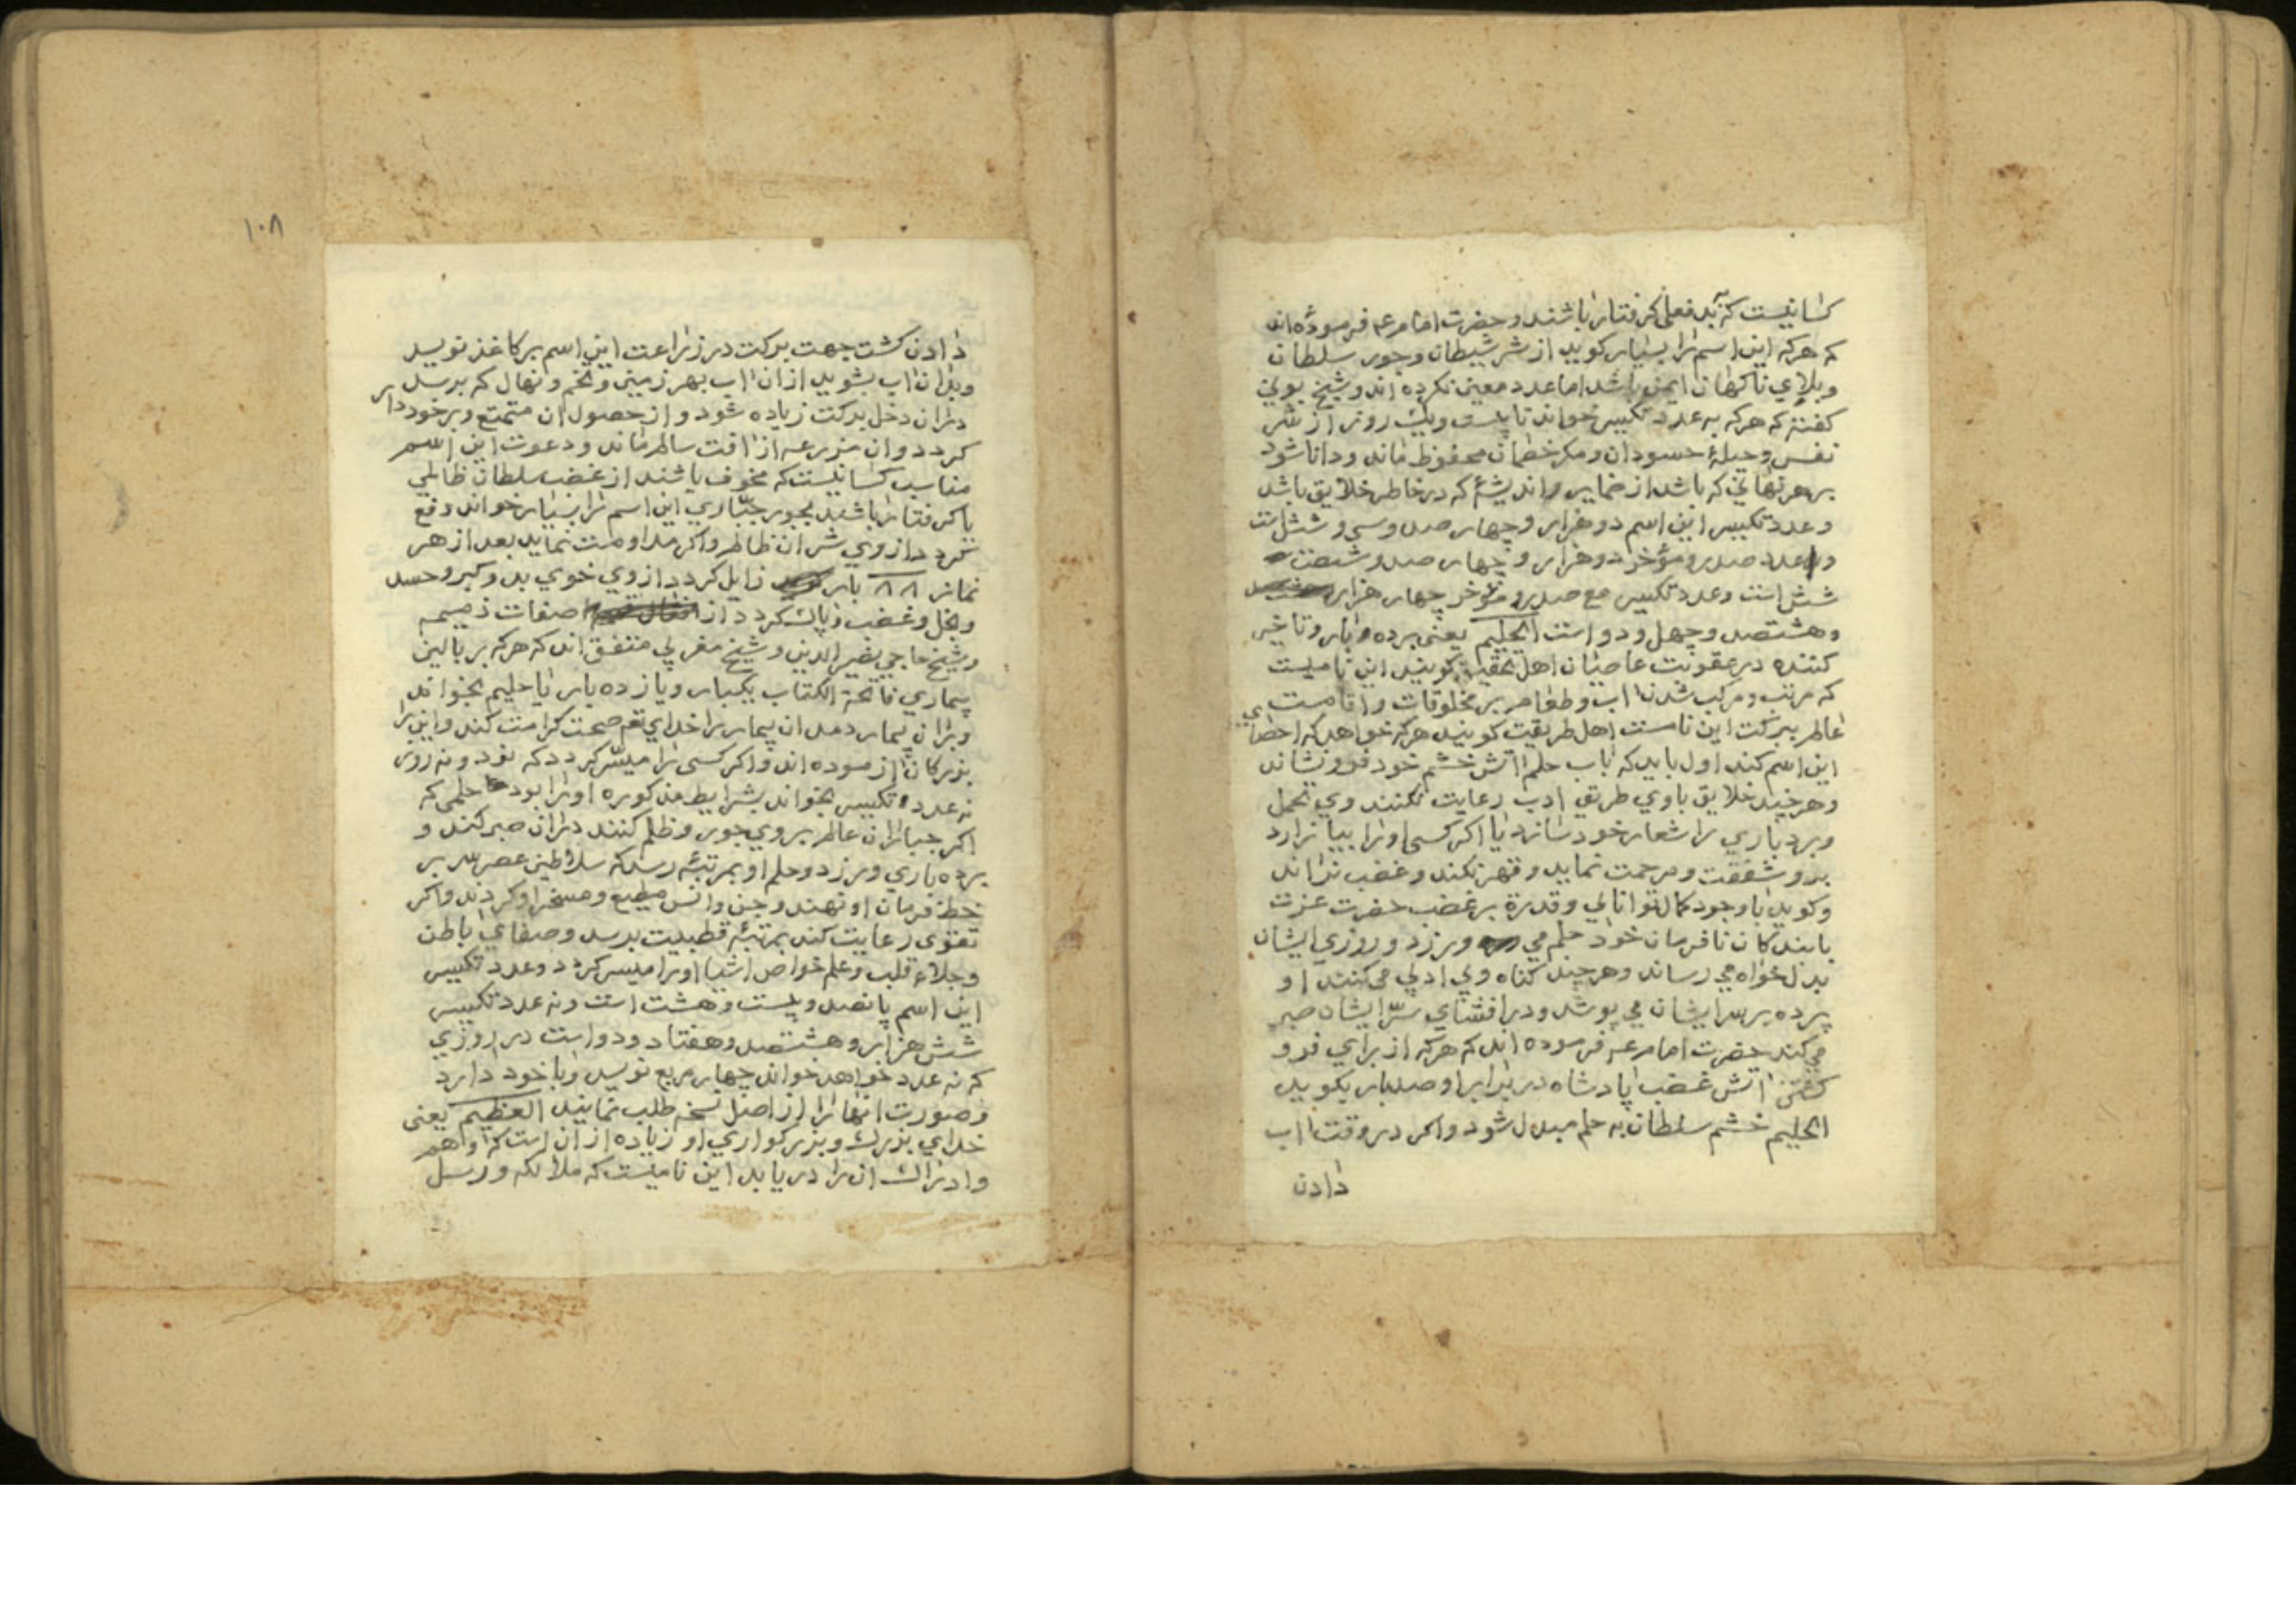 کسانیست که ببد فعلی گرفتار باشند و حضرت امام عم فرموده اند
که هرکه این اسم را بسیار کوید از شر شیطان و جور سلطان
و بلای ناکهان ایمن باشد اما عدد معین نکرده اند و شیخ بونی
کفته که هرکه به عدد تکبیر خواند تا بیست و یک روز از شر
نفس و حیلهٔ حسودان و مکر خصمان محفوظ ماند و دانا شود
بر هر نهانی که باشد از ضمایر و اندیشهٔ که در خاطر خلایق باشد
و عدد تکسیر این اسم دو هزار و چهار صد و سی و شش است
و عدد صدر و مؤخر دو هزار و چهار صد و شصت
شش است و عدد تکسیر مع صدر و مؤخر چهار هزار
و هشتصد و چهل و دو است الحلیم یعنی برده بار و تاخیر
کننده در عقوبت عاصیان اهل تحقیق کویند این نامیست
که مرتب و مرکب شدن اب و طعام بر مخلوقات و اقامت
عالم ببرکت این نامست اهل طریقت کویند هرکه خواهد که احصای
این اسم کند اول باید که باب حلم اتش خشم خود فرو نشاند
و هر چند خلایق باوی طریق ادب رعایت نکنند وی تحمل
و برد باری را شعار خود سازد یا اکر کسی اورا بیازارد
برو شفقت و مرحمت نماید و قهر نکند و غضب نراند
و کوید با وجود کمال توانایی و قدرة بر غضب حضرت عزت
با بندکان نافرمان خود حلم می ورزد و روزی ایشان
بدل خواه می رساند و هر چند کناه و بی ادبی می کنند او
پرده بر سر ایشان می پوشد و در افشای سرّ ایشان صبر
می کند حضرت امام عم فرموده اند که هرکه از برای فرو
کشتن اتش غضب پادشاه در برابر او صد بار بکوید
الحلیم خشم سلطان به حلم مبدل شود و اکر در وقت اب
دادن
١٠٨
دادن کشت جهت برکت در زراعت این اسم بر کاغذ نویسد
و بدان اب بشوید از ان اب بهر زمین و تخم و نهال که برسد
در ان دخل برکت زیاده شود و از حصول ان متمتع و برخوردار
کردد و ان مزرعه از افت سالم ماند و دعوت این اسم
مناسب کسانیست که مخوف باشند از غضب سلطان ظالمی
یا کرفتار باشند بجور جبّاری این اسم را بسیار خواند دفع
کردد از وی شر ان ظالم و اکر مداومت نماید بعد از هر
نماز ٨٨ بار زایل کردد از وی خوی بد و کبر و حسد
و بخل و غضب و پاک کردد از صفات ذمیمه
و شیخ حاجی نصیر الدین و شیخ مغربی متفق اند که هرکه بر بالین
بیماری فاتحة الکتاب یکبار و یازده بار یا حلیم بخواند
و بران بیمار دمد ان بیمار را خدای تعم صحت کرامت کند و این را
بزرکان ازموده اند و اکر کسی را میسّر کردد که نود و نه روز
نه عدد تکسیر بخواند بشرایط مذکوره اورا بود حلمی که
اکر جباران عالم بر وی جور و ظلم کنند در ان صبر کند و
برده باری ورزد و حلم او بمرتبهٔ رسد که سلاطین عصر سر بر
خط فرمان او نهند و جن و انس مطیع و مسخر او کردند و اکر
تقوی رعایت کند بمرتبهٔ قطبیت برسد و صفای باطن
و جلاء قلب و علم خواص اشیا اورا میسر کردد و عدد تکسیر
این اسم پانصد و بیست و هشت است و نه عدد تکسیر
شش هزار و هشتصد و هفتاد و دو است در روزی
که نه عدد خواهد خواند چهار مربع نویسد و با خود دارد
و صورت انها را از اصل نسخه طلب نمایند العظیم یعنی
خدای بزرک و بزرکواری او زیاده از ان است که او هم
و ادراک ان را دریابد این نامیست که ملائکه و رسل